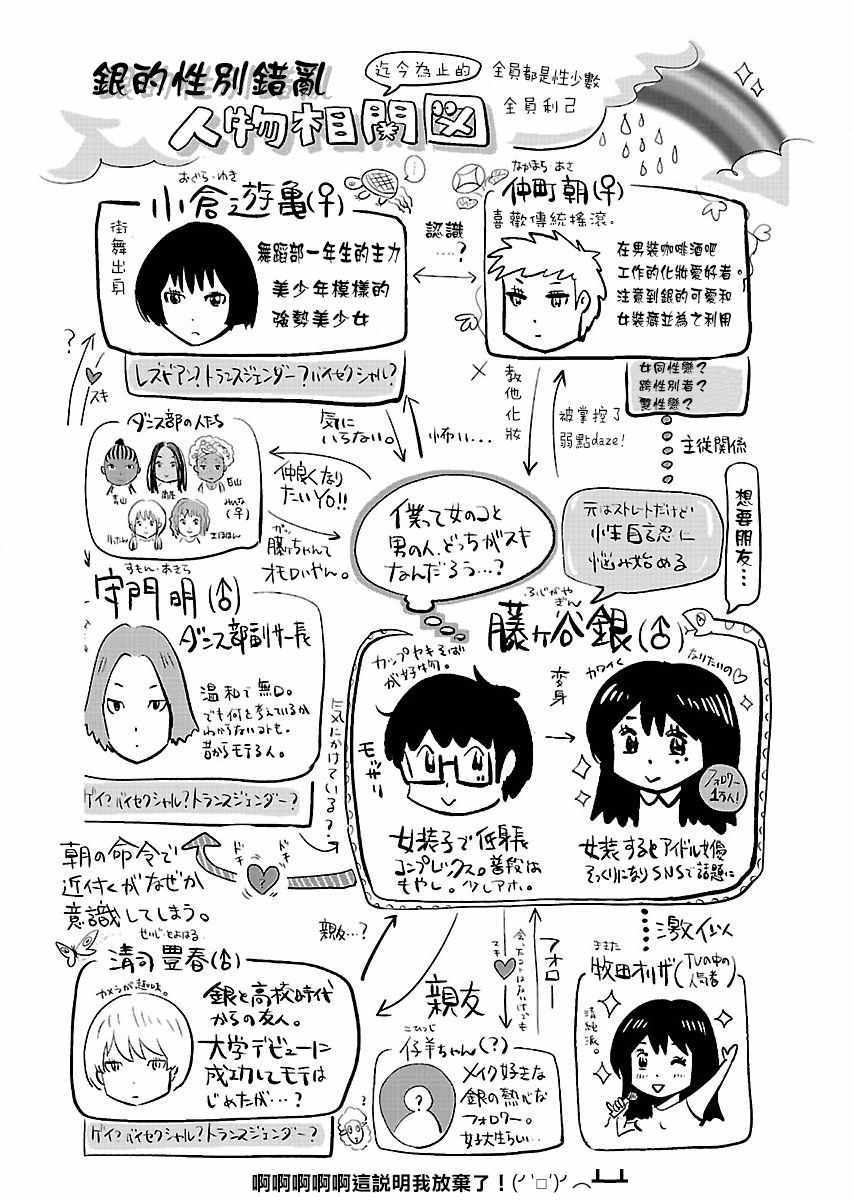 銀的性別錯亂
人物相関図
迄今為止的
全員都是性少數
全員利己
おぐら・ゆき
小倉遊亀(♀)
街舞出身
舞蹈部一年生的主力
美少年模樣的
強勢美少女
レズビアン?トランスジェンダー?バイセクシャル?
認識
……?
なかまち あさ
仲町朝(♀)
喜歡傳統搖滾。
在男裝咖啡酒吧
工作的化妝愛好者。
注意到銀的可愛和
女裝癖並為之利用
女同性戀?
跨性別者?
雙性戀?
主從關係
?
スキ
ダンス部の人たち
青山
白山
みんな
(♀)
気に
いらない。
怖い…
教他化妝
被掌控了
弱點daze!
仲良くなり
たいYO!!
藤ヶちゃんて
オモロいやん。
僕って女のコと
男の人、どっちがスキ
なんだろう…?
元はストレートだけど
性自認に
悩み始める
想要朋友…
すもん・あきら
守門明(♂)
ダンス部副サー長
温和で無口。
でも何を考えているか
わからないコトも。
昔からモテる人。
ゲイ?バイセクシャル?トランスジェンダー?
気にかけている?
ふじがや ぎん
藤ヶ谷銀(♂)
カップヤキそば
が好物。
モッサリ
変身
カワイく
なりたいの♡
フォロワー
1万人!
女装子で低身長
コンプレックス。普段は
もやし。少しアホ。
女装するとアイドル女優
そっくりになりSNSで話題に
朝の命令で
近付くがなぜか
意識してしまう。
ドキ
?
ドキ
親友…?
せいじ・とよはる
清司豊春(♂)
カメラが趣味。
銀と高校時代
からの友人。
大学デビューに
成功してモテは
じめたが…?
ゲイ?バイセクシャル?トランスジェンダー?
親友
スキ
会ったコトはないけどでも
フォロー
こひつじ
仔羊ちゃん(?)
?
メイク好きな
銀の熱心な
フォロワー。
女子大生らしい…
激似
まきた
牧田オリザ(TVの中の人気者)
清純派。
啊啊啊啊啊這説明我放棄了！(╯‵□′)╯︵┻━┻